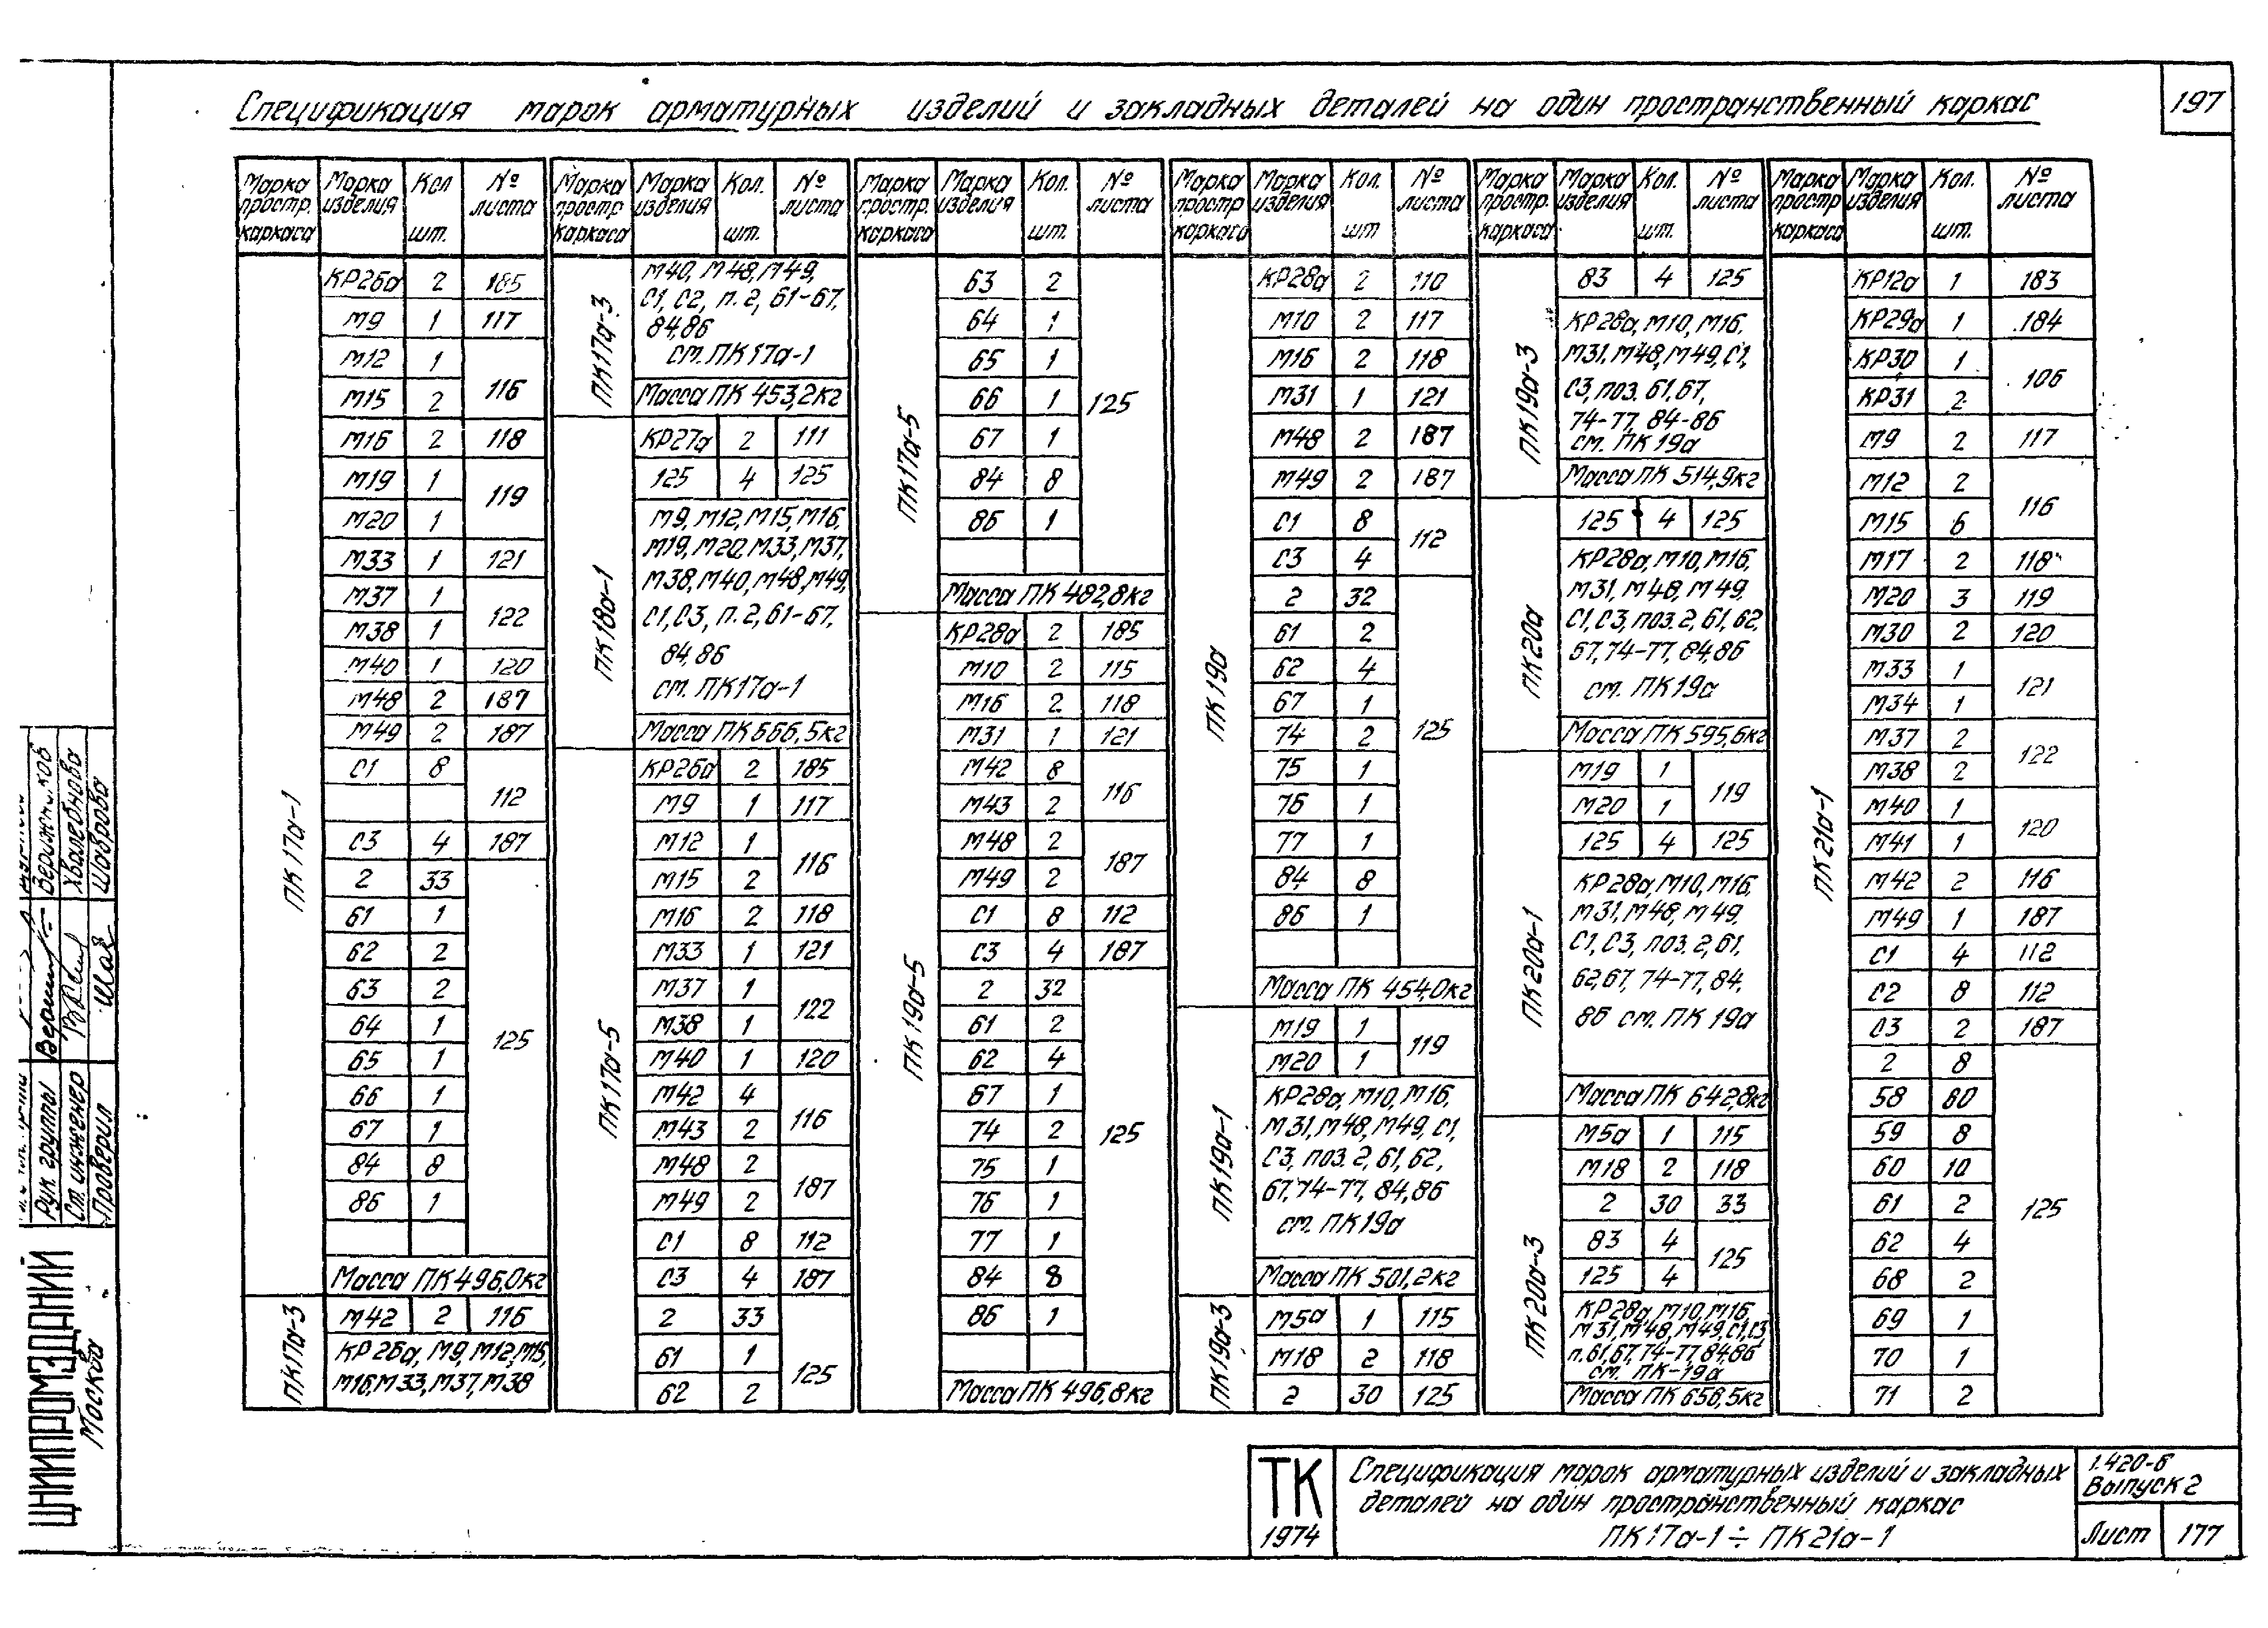 197
Спецификация марок арматурных изделий и закладных деталей на один пространственный каркас
Марка простр. каркаса Марка изделия Кол шт. № листа
ПК17а-1
КР26а 2 185
М9 1 117
М12 1
116
М15 2
М16 2 118
М19 1
119
М20 1
М33 1 121
М37 1
122
М38 1
М40 1 120
М48 2 187
М49 2 187
С1 8
112
С3 4 187
2 33
61 1
62 2
63 2
64 1
125
65 1
66 1
67 1
84 8
86 1
Масса ПК 496,0кг
ПК17а-3
М42 2 116
КР26а, М9, М12, М15,
М16, М33, М37, М38
Марка простр. каркаса Марка изделия Кол. шт. № листа
ПК17а-3
М40, М48, М49,
С1, С2, п. 2, 61-67,
84,86
см. ПК17а-1
Масса ПК 453,2кг
ПК18а-1
КР27а 2 111
125 4 125
М9, М12, М15, М16,
М19, М20, М33, М37,
М38, М40, М48, М49,
С1, С3, п. 2, 61-67,
84,86
см. ПК17а-1
Масса ПК 666,5кг
ПК17а-5
КР26а 2 185
М9 1 117
М12 1
116
М15 2
М16 2 118
М33 1 121
М37 1
122
М38 1
М40 1 120
М42 4
116
М43 2
М48 2
187
М49 2
С1 8 112
С3 4 187
2 33
61 1
125
62 2
Марка простр. каркаса Марка изделия Кол. шт. № листа
ПК17а-5
63 2
64 1
65 1
66 1 125
67 1
84 8
86 1
Масса ПК 482,8кг
ПК19а-5
КР28а 2 185
М10 2 115
М16 2 118
М31 1 121
М42 8
116
М43 2
М48 2
187
М49 2
С1 8 112
С3 4 187
2 32
61 2
62 4
67 1
74 2 125
75 1
76 1
77 1
84 8
86 1
Масса ПК 496,8кг
Марка простр каркаса Марка изделия Кол. шт № листа
ПК19а
КР28а 2 110
М10 2 117
М16 2 118
М31 1 121
М48 2 187
М49 2 187
С1 8
112
С3 4
2 32
61 2
62 4
67 1
74 2 125
75 1
76 1
77 1
84 8
86 1
Масса ПК 454,0кг
ПК19а-1
М19 1
119
М20 1
КР28а, М10, М16,
М31, М48, М49, С1,
С3, поз. 2, 61, 62,
67, 74-77, 84,86
см. ПК19а
Масса ПК 501,2кг
ПК19а-3
М5а 1 115
М18 2 118
2 30 125
Марка простр. каркаса Марка изделия Кол. шт. № листа
ПК19а-3
83 4 125
КР28а, М10, М16,
М31, М48, М49, С1,
С3, поз. 61,67,
74-77, 84-86
см. ПК19а
Масса ПК 514,9кг
ПК20а
125 4 125
КР28а, М10, М16,
М31, М48, М49,
С1, С3, поз. 2, 61, 62,
67, 74-77, 84,86
см. ПК19а
Масса ПК 595,6кг
ПК20а-1
М19 1
119
М20 1
125 4 125
КР28а, М10, М16,
М31, М48, М49,
С1, С3, поз. 2, 61,
62,67, 74-77, 84,
86 см. ПК 19а
Масса ПК 642,8кг
ПК20а-3
М5а 1 115
М18 2 118
2 30 33
83 4
125
125 4
КР28а, М10, М16,
М31, М48, М49, С1, С3,
п. 61, 67, 74-77, 84,86
см. ПК-19а
Масса ПК 656,5кг
Марка простр каркаса Марка изделия Кол. шт. № листа
ПК21а-1
КР12а 1 183
КР29а 1 184
КР30 1
106
КР31 2
М9 2 117
М12 2
116
М15 6
М17 2 118
М20 3 119
М30 2 120
М33 1
121
М34 1
М37 2
122
М38 2
М40 1
120
М41 1
М42 2 116
М49 1 187
С1 4 112
С2 8 112
С3 2 187
2 8
58 80
59 8
60 10
61 2 125
62 4
68 2
69 1
70 1
71 2
ТК
1974
Спецификация марок арматурных изделий и закладных
деталей на один пространственный каркас
ПК17а-1 ÷ ПК21а-1
1.420-6
Выпуск 2
Лист 177
ЦНИИПРОМЗДАНИЙ
Москва
Рук. группы Верижников
Ст. инженер Хвалебнова
Проверил Шаврова